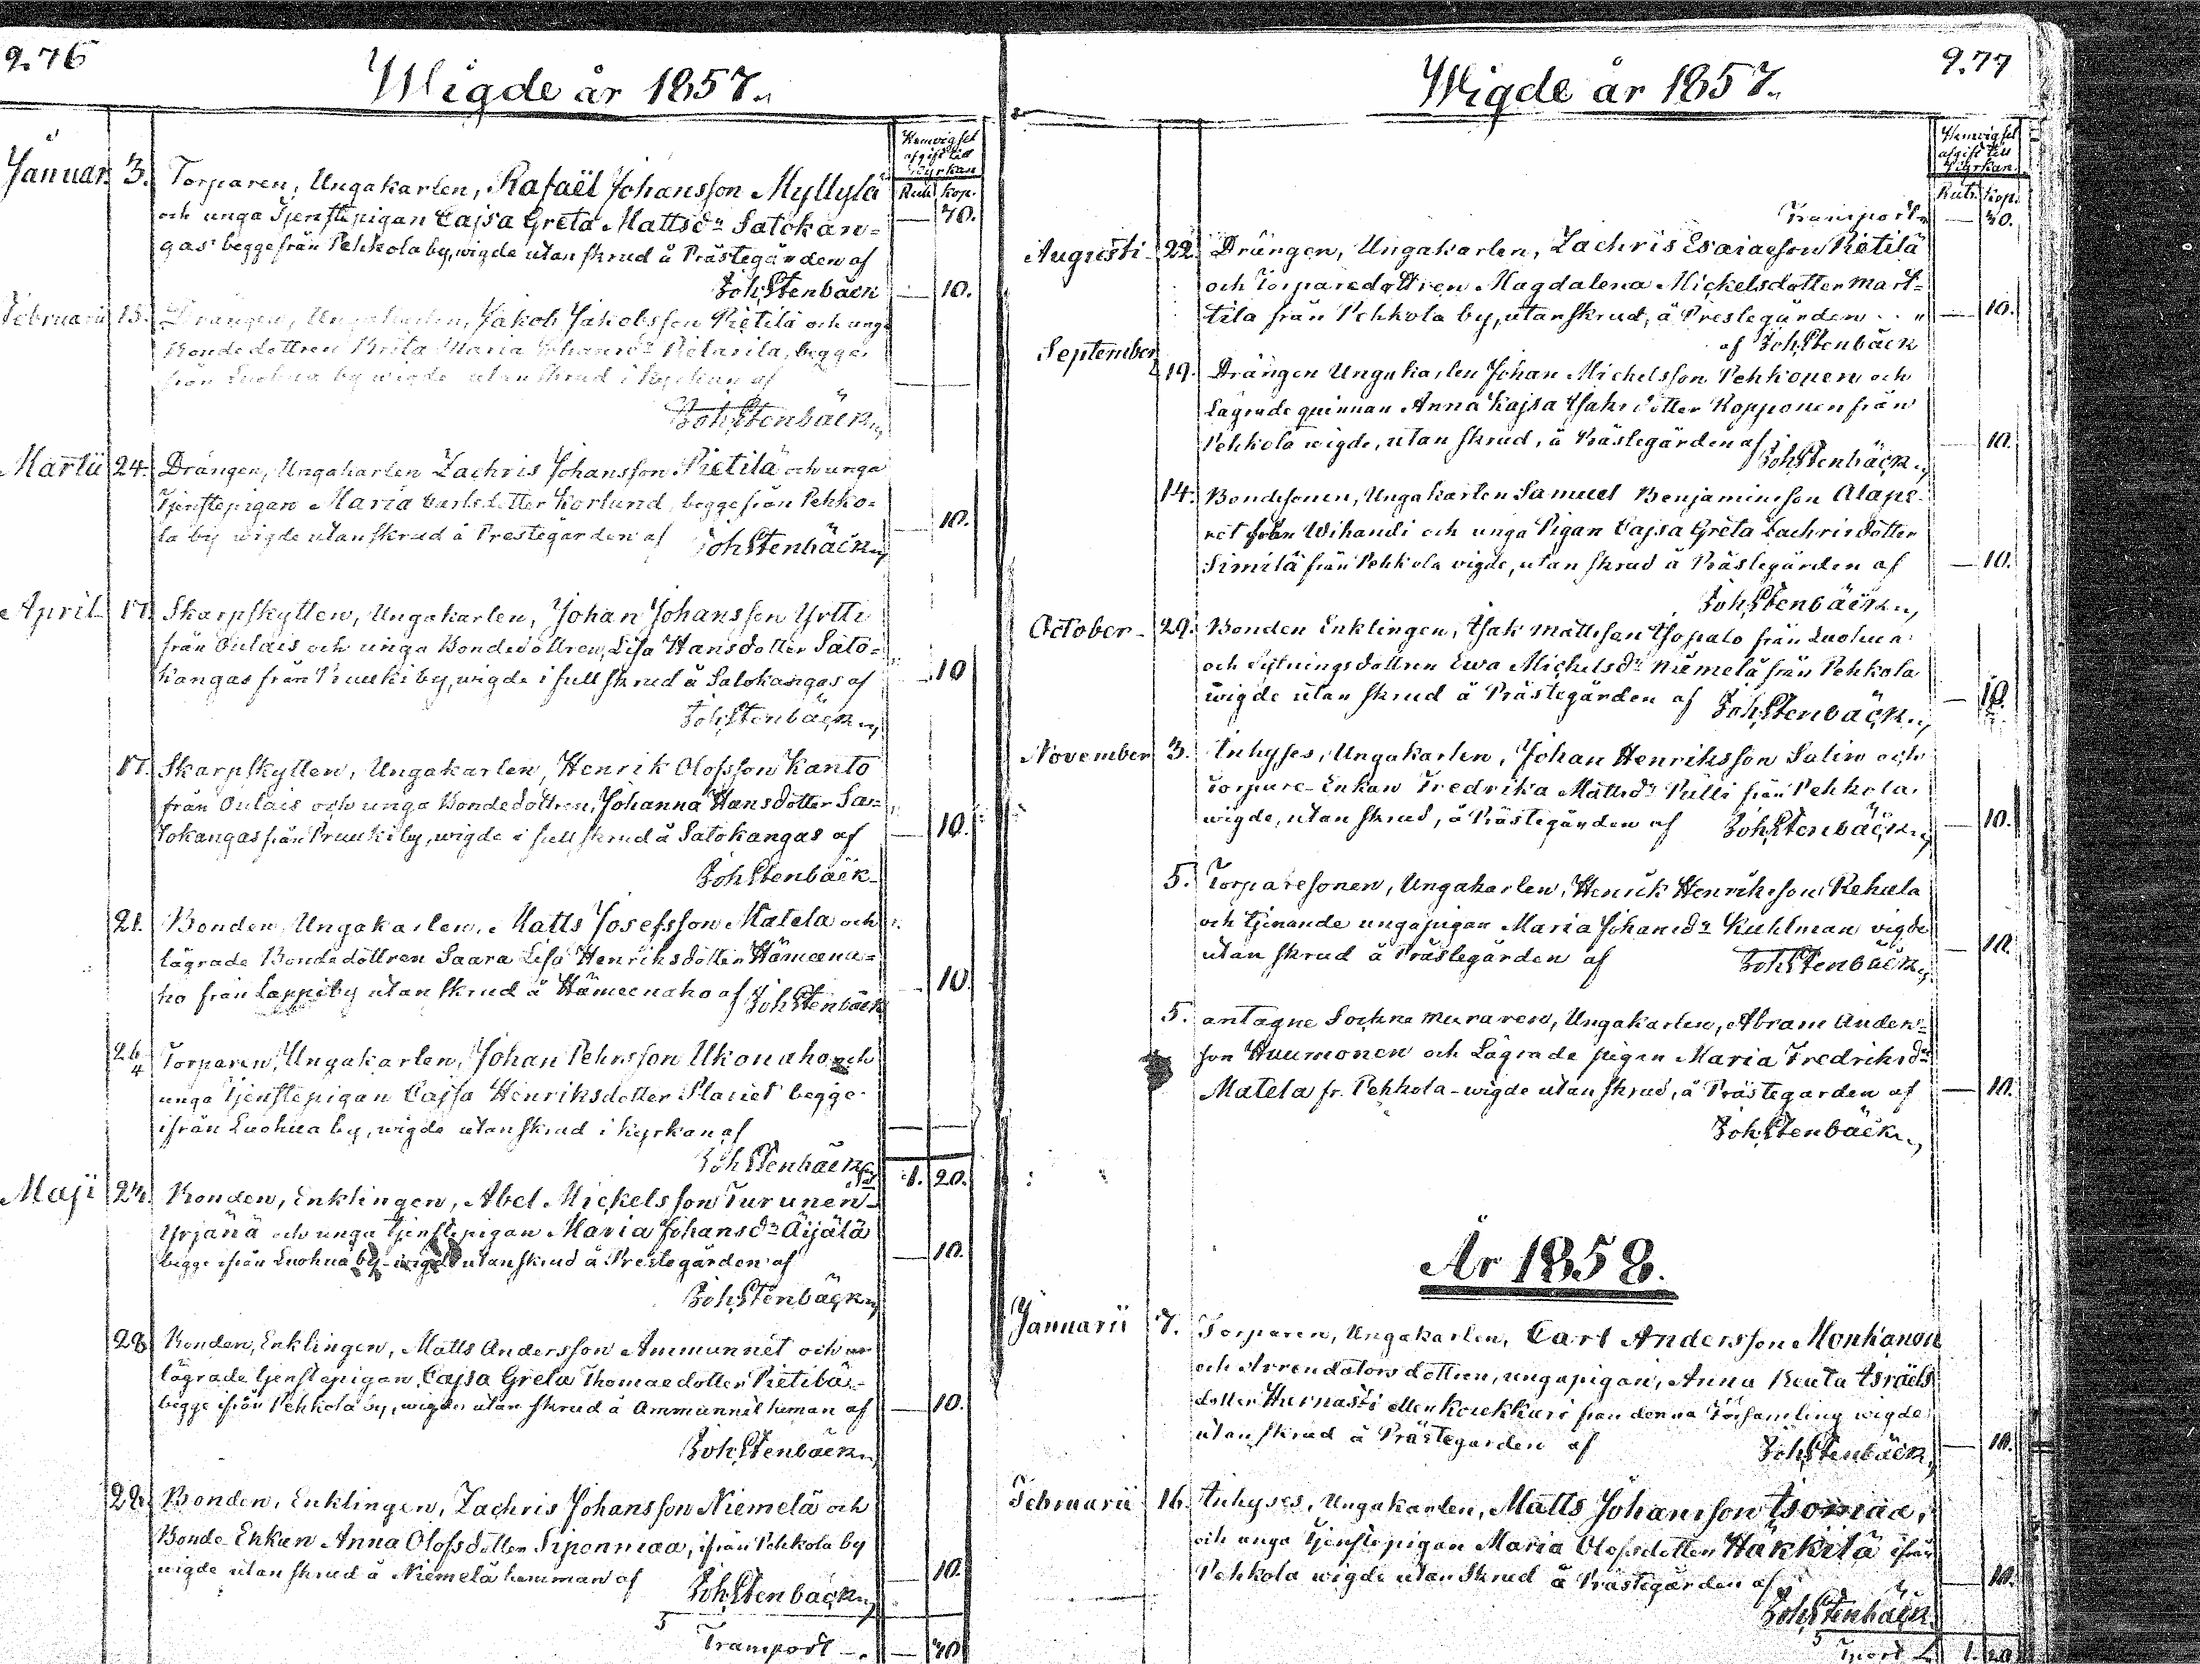 276
Wigde år 1857.
Hemvigsel
afgift till
Kyrkan
Rub. Kop.
Januar. 3. Torparen, Ungakarlen, Rafaël Johansson Myllylä
och unga Tjenstepigan Cajsa Greta Mattsdr Satokan=
— 70.
gas begge från Pehkola by, wigde utan skrud å Prästegården af
Joh Stenbäck — 10.
Februarii 15. Drängen, Ungakarlen, Jakob Jakobsson Pietilä och unga
Bondedottren Brita Maria Johansdr Pietarila, begge
från Luohua by wigde utan skrud i kyrkan af —
Joh Stenbäck
Martii 24. Drängen, Ungakarlen Zachris Johansson Pietilä och unga
Tjenstepigan Maria Carlsdotter Korlund, begge från Pehko=
la by wigde utan skrud å Prestegården af Joh Stenbäck — 10.
April 17. Skarpskytten, Ungakarlen, Johan Johansson Yrtti
från Oulais och unga Bondedottren, Lisa Hansdotter Sato=
kangas från Pruuki by, wigde i full skrud å Satokangas af — 10
Joh Stenbäck
17. Skarpskytten, Ungakarlen, Henrik Olofsson Kanto
från Oulais och unga Bondedottren, Johanna Hansdotter Sa=
tokangas från Pruuki by, wigde i full skrud å Satokangas af — 10.
Joh Stenbäck
21. Bonden, Ungakarlen, Matts Josefsson Matela och
lägrade Bondedottren Saara Lisa Henriksdotter Hämeena=
ho från Lappi by utan skrud å Hämeenaho af Joh Stenbäck — 10
26/4 Torparen, Ungakarlen, Johan Pehrsson Ukonaho och
unga Tjenstepigan Cajsa Henriksdotter Planet begge
ifrån Luohua by, wigde utan skrud i kyrkan af —
Joh Stenbäck
1. 20.
Maji 24. Bonden, Enklingen, Abel Mickelsson Turunen
Yrjänä och unga Tjenstepigan Maria Johansdr Äijälä
begge ifrån Luohua by wigde utan skrud å Prestegården af — 10.
Joh Stenbäck
28 Bonden, Enklingen, Matts Andersson Ammunnet och
lägrade tjenstepigan Cajsa Greta Thomaedotter Pietilä
begge ifrån Pehkola by, wigde utan skrud å Ammunnet heman af — 10.
Joh Stenbäck
28. Bonden, Enklingen, Zachris Johansson Niemelä och
Bonde Enkan Anna Olofsdotter Siponmaa, ifrån Pehkola by
wigde utan skrud å Niemelä hemman af — 10.
Joh Stenbäck
Transport — 70
277
Wigde år 1857.
Hemvigsel
afgift till
Kyrkan
Rub. Kop.
Transport — 70.
Augusti 22 Drängen, Ungakarlen, Zachris Esaiasson Pietilä
och Torparedottren Magdalena Mickelsdotter Mart=
tila från Pehkola by, utan skrud, å Prestegården — 10.
af Joh Stenbäck
September 19. Drängen Ungakarlen Johan Mickelsson Pehkonen och
Lägrade quinnan Anna Kajsa Isaksdotter Kopponen från
Pehkola wigde, utan skrud, å Prästegården af — 10.
Joh Stenbäck
14. Bondesonen, Ungakarlen Samuel Benjaminsson Alape
ret från Wihandi och unga Pigan Cajsa Greta Zachrisdotter
Similä från Pehkola wigde, utan skrud å Prästegården af — 10.
Joh Stenbäck
October 29. Bonden Enklingen, Isak Mattsson Isopalo från Luohua
och Sytningsdottren Ewa Mickelsdr Niemelä från Pehkola
wigde utan skrud å Prästegården af Joh Stenbäck — 10.
November 3. Inhyses, Ungakarlen, Johan Henriksson Salin och
Torpare-Enkan Fredrika Mattsdr Pilli från Pehkola,
wigde, utan skrud, å Prästegården af Joh Stenbäck — 10.
5. Torparesonen, Ungakarlen, Henrik Henriksson Rehula
och tjenande ungapigan Maria Johansdr Kuhlman vigde
utan skrud å Prästegården af Joh Stenbäck — 10.
5. antagne Sockne muraren, Ungakarlen, Abram Anders=
son Huumonen och Lägrade pigan Maria Fredriksdr
Matela fr. Pehkola – wigde utan skrud, å Prästegården af — 10.
Joh Stenbäck
År 1858.
Januarii 7. Torparen, Ungakarlen, Carl Andersson Monkanen
och Arrendators dottren, ungapigan, Anna Beata Israels
dotter Hurnasti eller Koukkari från denna Församling wigde
utan skrud å Prästegården af Joh Stenbäck — 10.
Februarii 16. Inhyses, Ungakarlen, Matts Johansson Isomaa,
och unga Tjenstepigan Maria Olofsdotter Häkkilä ifrån
Pehkola wigde utan skrud å Prästegården af — 10.
Joh Stenbäck
1. 20